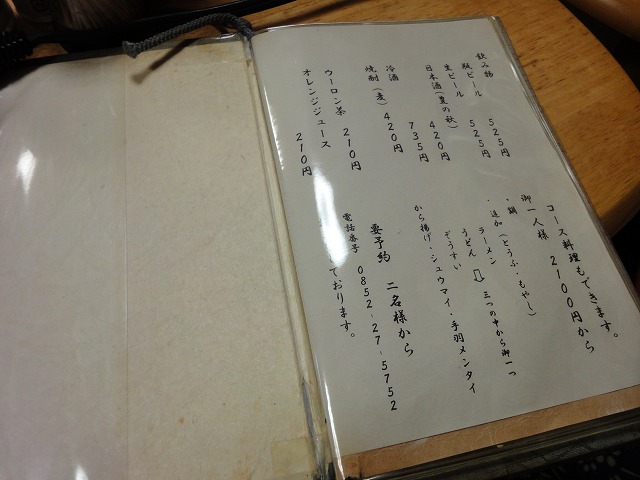 飲み物
瓶ビール 525円
生ビール 525円
日本酒(夏の秋) 420円
冷酒 735円
焼酎(麦) 420円
ウーロン茶 210円
オレンジジュース 210円
コース料理もできます。
御一人様 2100円から
・鍋
・追加(とうふ・もやし)
ラーメン
うどん ⇨ 三つの中から御一つ
ぞうすい
から揚げ・シュウマイ・手羽メンタイ
要予約 二名様から
電話番号 0852-27-5752
ております。